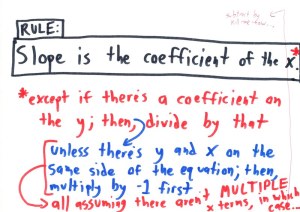 RULE:
Slope is the coefficient of the x.
*except if there's a coefficient on
the y; then, divide by that
unless there's y and x on the
same side of the equation; then,
multiply by -1 first
all assuming there aren't MULTIPLE
x terms, in which
case...